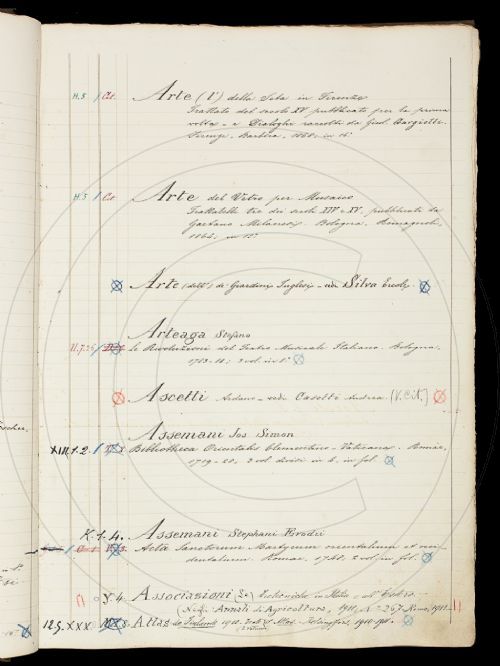 H.5 / Cit. Arte (l') della Seta in Firenze
Trattato del secolo XV pubblicato per la prima
volta - e Dialoghi raccolti da Girol. Gargiolli.
Firenze. Barbèra, 1868. in 16.
H.5 / Cit. Arte del Vetro per Musaico
Trattatelli tre dei secoli XIV e XV. pubblicati da
Gaetano Milanesi. Bologna. Romagnoli,
1864. in 12.
Arte (dell') dei Giardini Inglesi - vedi Silva Ercole.
Arteaga Stefano
Le Rivoluzioni del Teatro Musicale Italiano. Bologna,
1783-88; 3 vol. in 8.
Ascetti - vedi Casotti Andrea. (V. Cit.)
Assemani Jos. Simon
XIII.1.2. / Bibliotheca Orientalis Clementino-Vaticana. Romae,
1719-28, 3 vol. divisi in 4. in fol.
K.1.4. Assemani Stephani Evodii
Acta Sanctorum Martyrum orientalium et occi-
dentalium. Romae, 1748. 2 vol. in fol.
Y 4. Associazioni (Le)
(Negli Annali di Agricoltura, 1911, N.º 267. Roma, 1911.-
12.9.XXX. Atlas de Finlande 1910. Helsingfors, 1910-911.